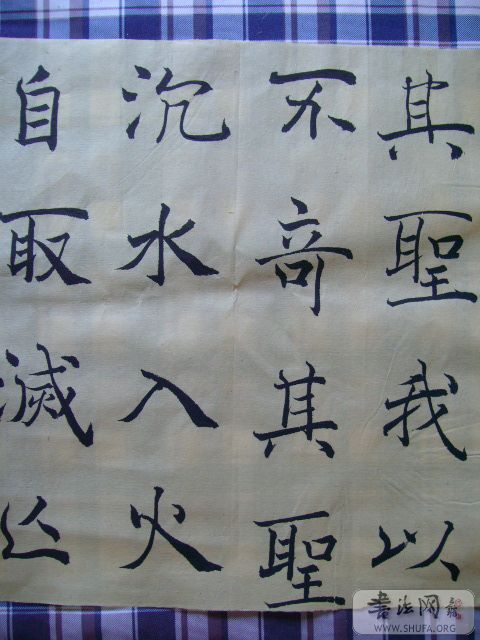 其聖我以
不奇其聖
沉水入火
自取滅亾
書法网
WWW.SHUFA.ORG